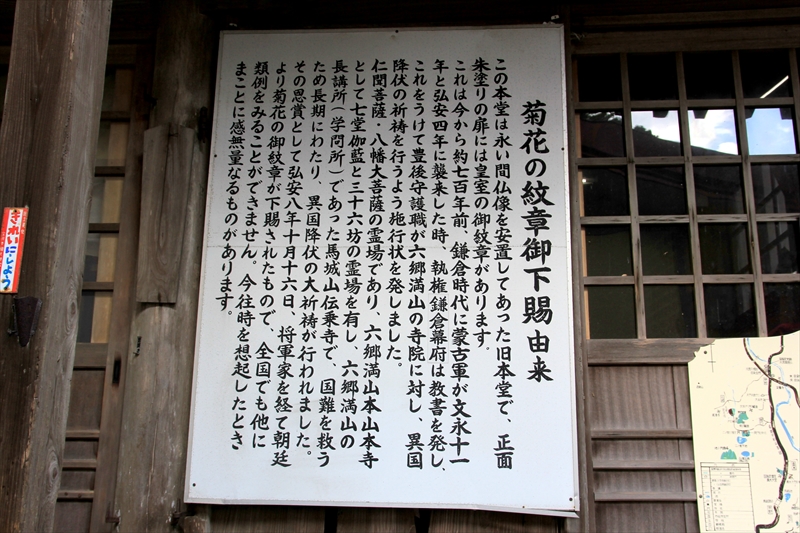 菊花の紋章御下賜由来
この本堂は永い間仏像を安置してあった旧本堂で、正面
朱塗りの扉には皇室の御紋章があります。
これは今から約七百年前、鎌倉時代に蒙古軍が文永十一
年と弘安四年に襲来した時、執権鎌倉幕府は教書を発し、
これをうけて豊後守護職が六郷満山の寺院に対し、異国
降伏の祈祷を行うよう施行状を発しました。
仁聞菩薩・八幡大菩薩の霊場であり、六郷満山本山本寺
として七堂伽藍と三十六坊の霊場を有し、六郷満山の
長講所（学問所）であった馬城山伝乗寺で、国難を救う
ため長期にわたり、異国降伏の大祈祷が行われました。
その恩賞として弘安八年十月十六日、将軍家を経て朝廷
より菊花の御紋章が下賜されたもので、全国でも他に
類例をみることができません。今往時を想起したとき
まことに感無量なるものがあります。
きれいにしよう